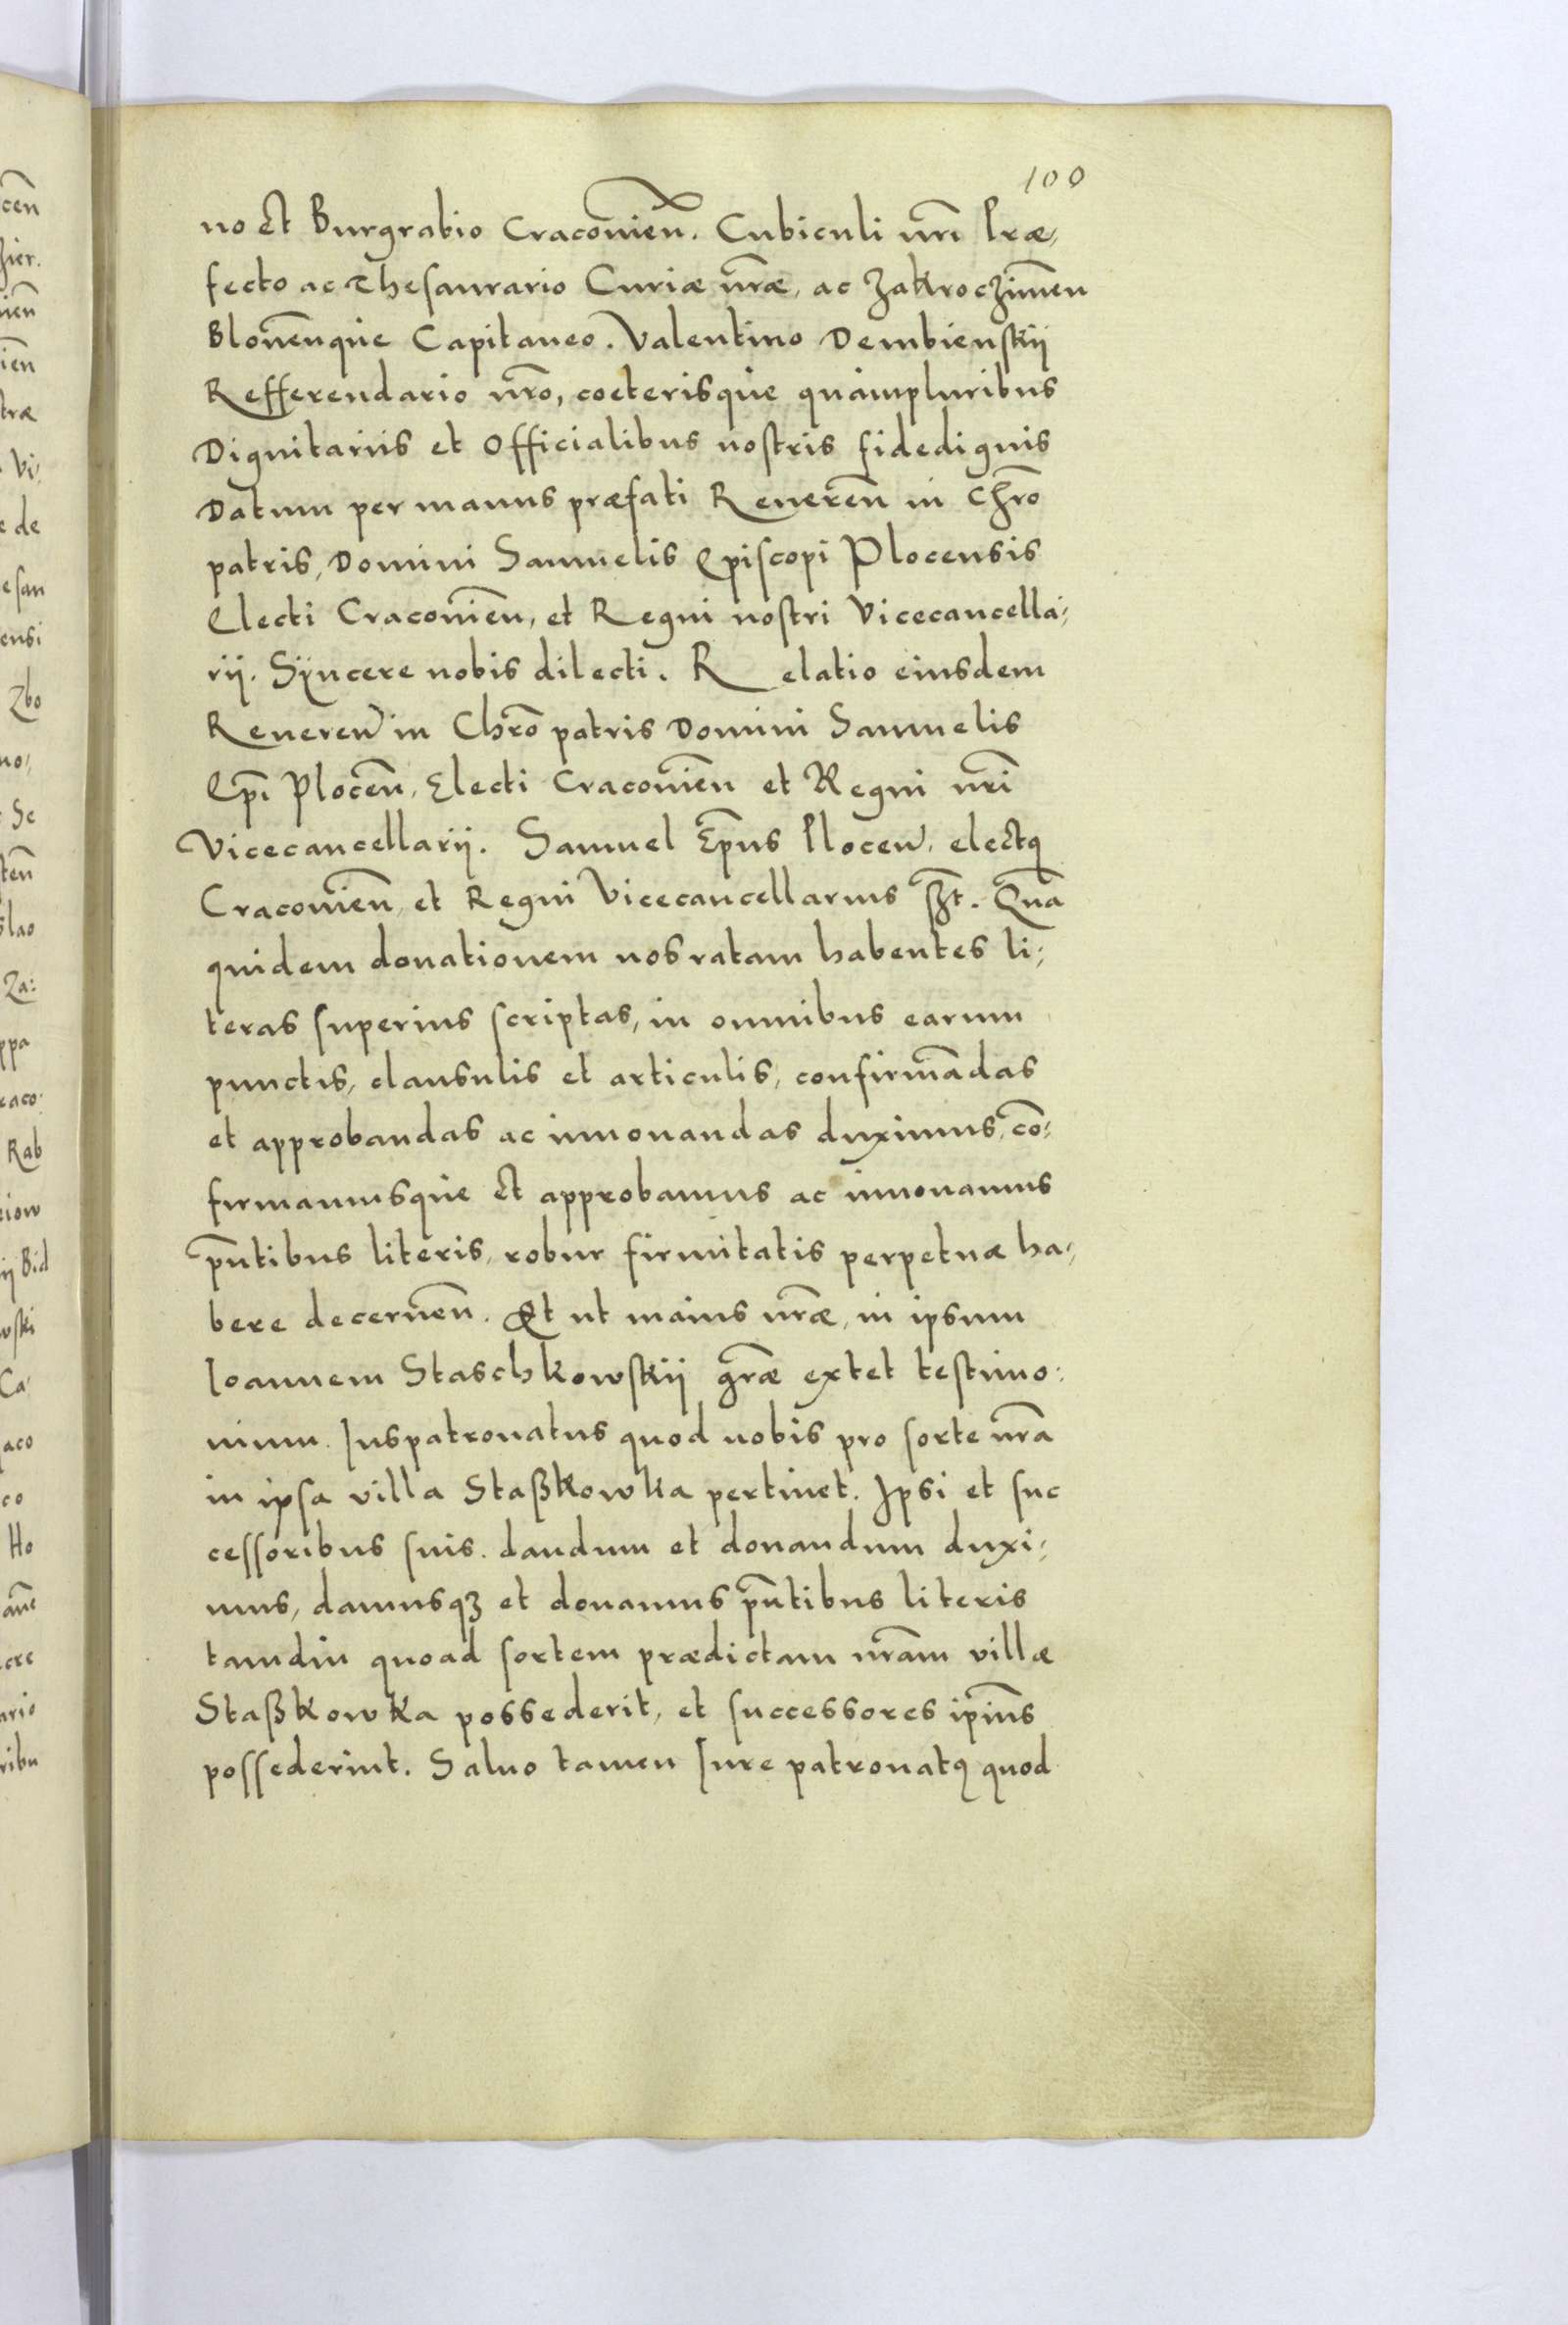 100
no et Burgrabio Cracovien̄. Cubiculi nr̄i Præ,
fecto ac Thesaurario Curiæ nr̄æ, ac Zakroczimēn
Blonēnque Capitaneo. Valentino Dembienskÿ
Refferendario nr̄o, coeterisque quàmpluribus
Dignitariis et Officialibus nostris fidedignis
Datum per manus præfati Reueren̄ in Chr̄o
patris, Domini Samuelis Episcopi Plocensis
Electi Cracovien̄, et Regni nostri Vicecancella;
rij. Sÿncere nobis dilecti. R elatio eiusdem
Reueren̄ in Chr̄o patris Domini Samuelis
Ep̄i Plocen̄, Electi Cracovien̄ et Regni nr̄i
Vicecancellarij. Samuel Ep̄us Plocen̄, electꝰ
Cracovien̄, et Regni Vicecancellarius sz̄t. Quā
quidem donationem nos ratam habentes li;
teras superius scriptas, in omnibus earum
punctis, clausulis et articulis, confirmādas
et approbandas ac innouandas duximus, cō;
firmamusque et approbamus ac innouamus
pn̄tibus literis, robur firmitatis perpetuæ ha;
bere decernen̄. Et ut maius nr̄æ, in ipsum
Ioannem Staschkowskij gr̄æ extet testimo:
nium. Iuspatronatus quod nobis pro sorte nr̄a
in ipsa villa Staßkowka pertinet. Ipsi et suc
cessoribus suis. dandum et donandum duxi;
mus, damusqꝫ et donamus pn̄tibus literis
tamdiu quoad sortem prædictam nr̄am villæ
Staßkowka possederit, et successores ip̄ius
possederint. Saluo tamen Iure patronatꝰ quod